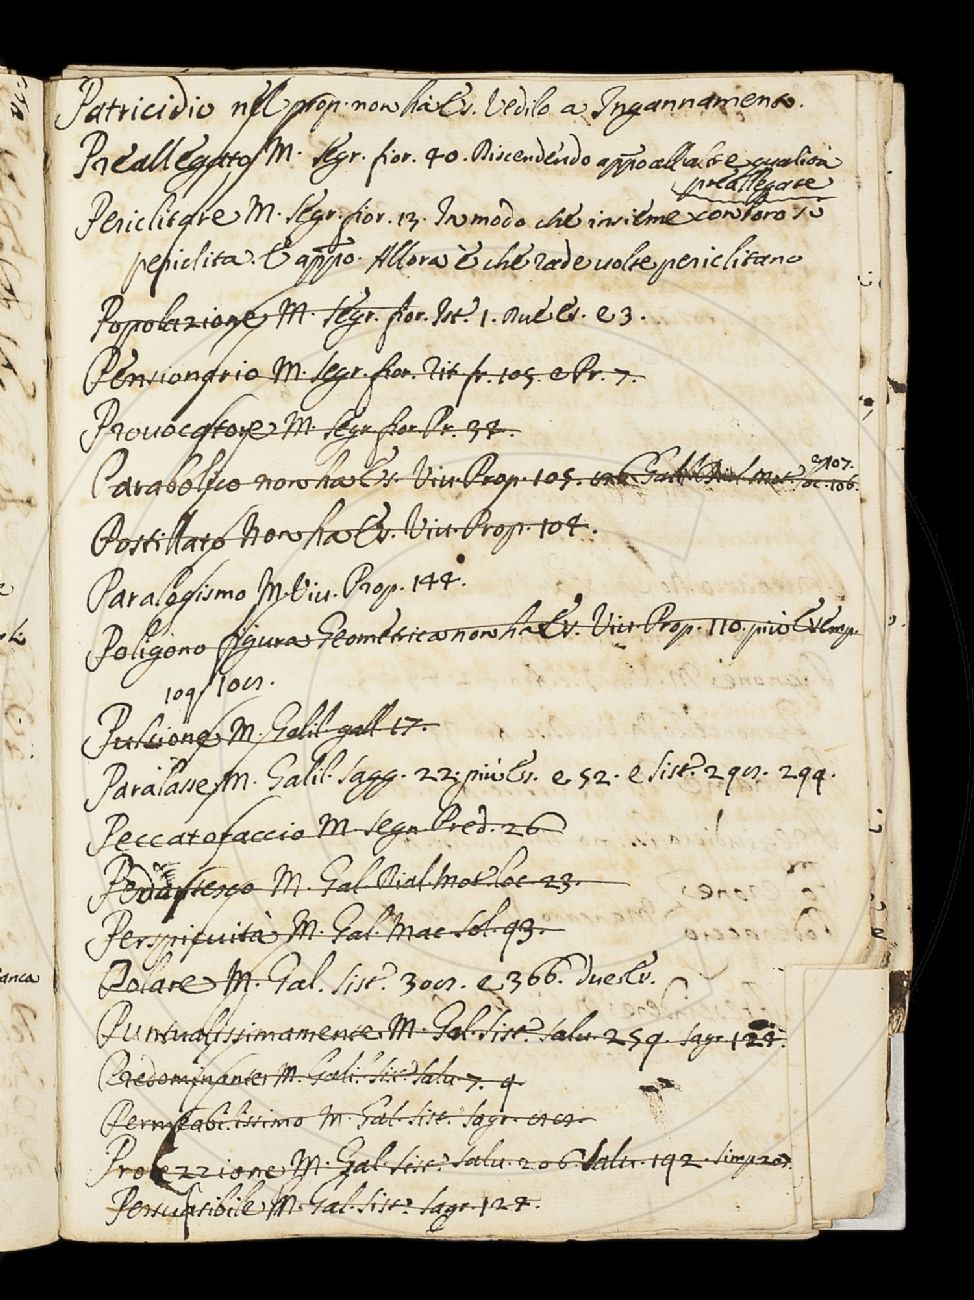 Patricidio nel prop. non ha Es. Vedilo a Ingannamento.
Preallegato M. Segr. fior. 40. Discendendo appo all'altre qualità
preallegate
Periclitare M. Segr. fior. 13. In modo che insieme con loro si
periclita. E appo. Allora è che rade volte periclitano
Popolazione M. Segr. fior. Ist. 1. Due Es. e 3.
Pensionario M. Segr. fior. Rit. fr. 105. e Pr. 7.
Provocatore M. Segr. fior. Pr. 34.
Parabolico non ha Es. Viv. Prop. 105. Gal. Dial. Mot. loc. 106.
e 107.
Postillato Non ha Es. Viv. Prop. 104.
Paralogismo M. Viv. Prop. 144.
Poligono figura Geometrica non ha Es. Viv. Prop. 110. più Esemp.
109
Pulsione M. Galil. gall. 17.
Paralasse M. Galil. Sagg. 22. più Es. e 52. e Sist. 294.
Peccatoraccio M. Segn. Pred. 26
M. Gal. Dial. Mot. loc. 23.
Perspicuità M. Gal. Mac. Sol. 93.
Polare M. Gal. Sist. e 366. due Es.
Puntualissimamente M. Gal. Sist. Salv. 259. Sagr. 124.
Predominante M. Gali. Sist. Salv. 7. 9
Permeabilissimo M. Gal. Sist. Sagr.
Proiezzione M. Gal. Sist. Salv. 206. Salv. 192. Simp. 207.
Persuasibile M. Gal. Sist. Sagr. 124.